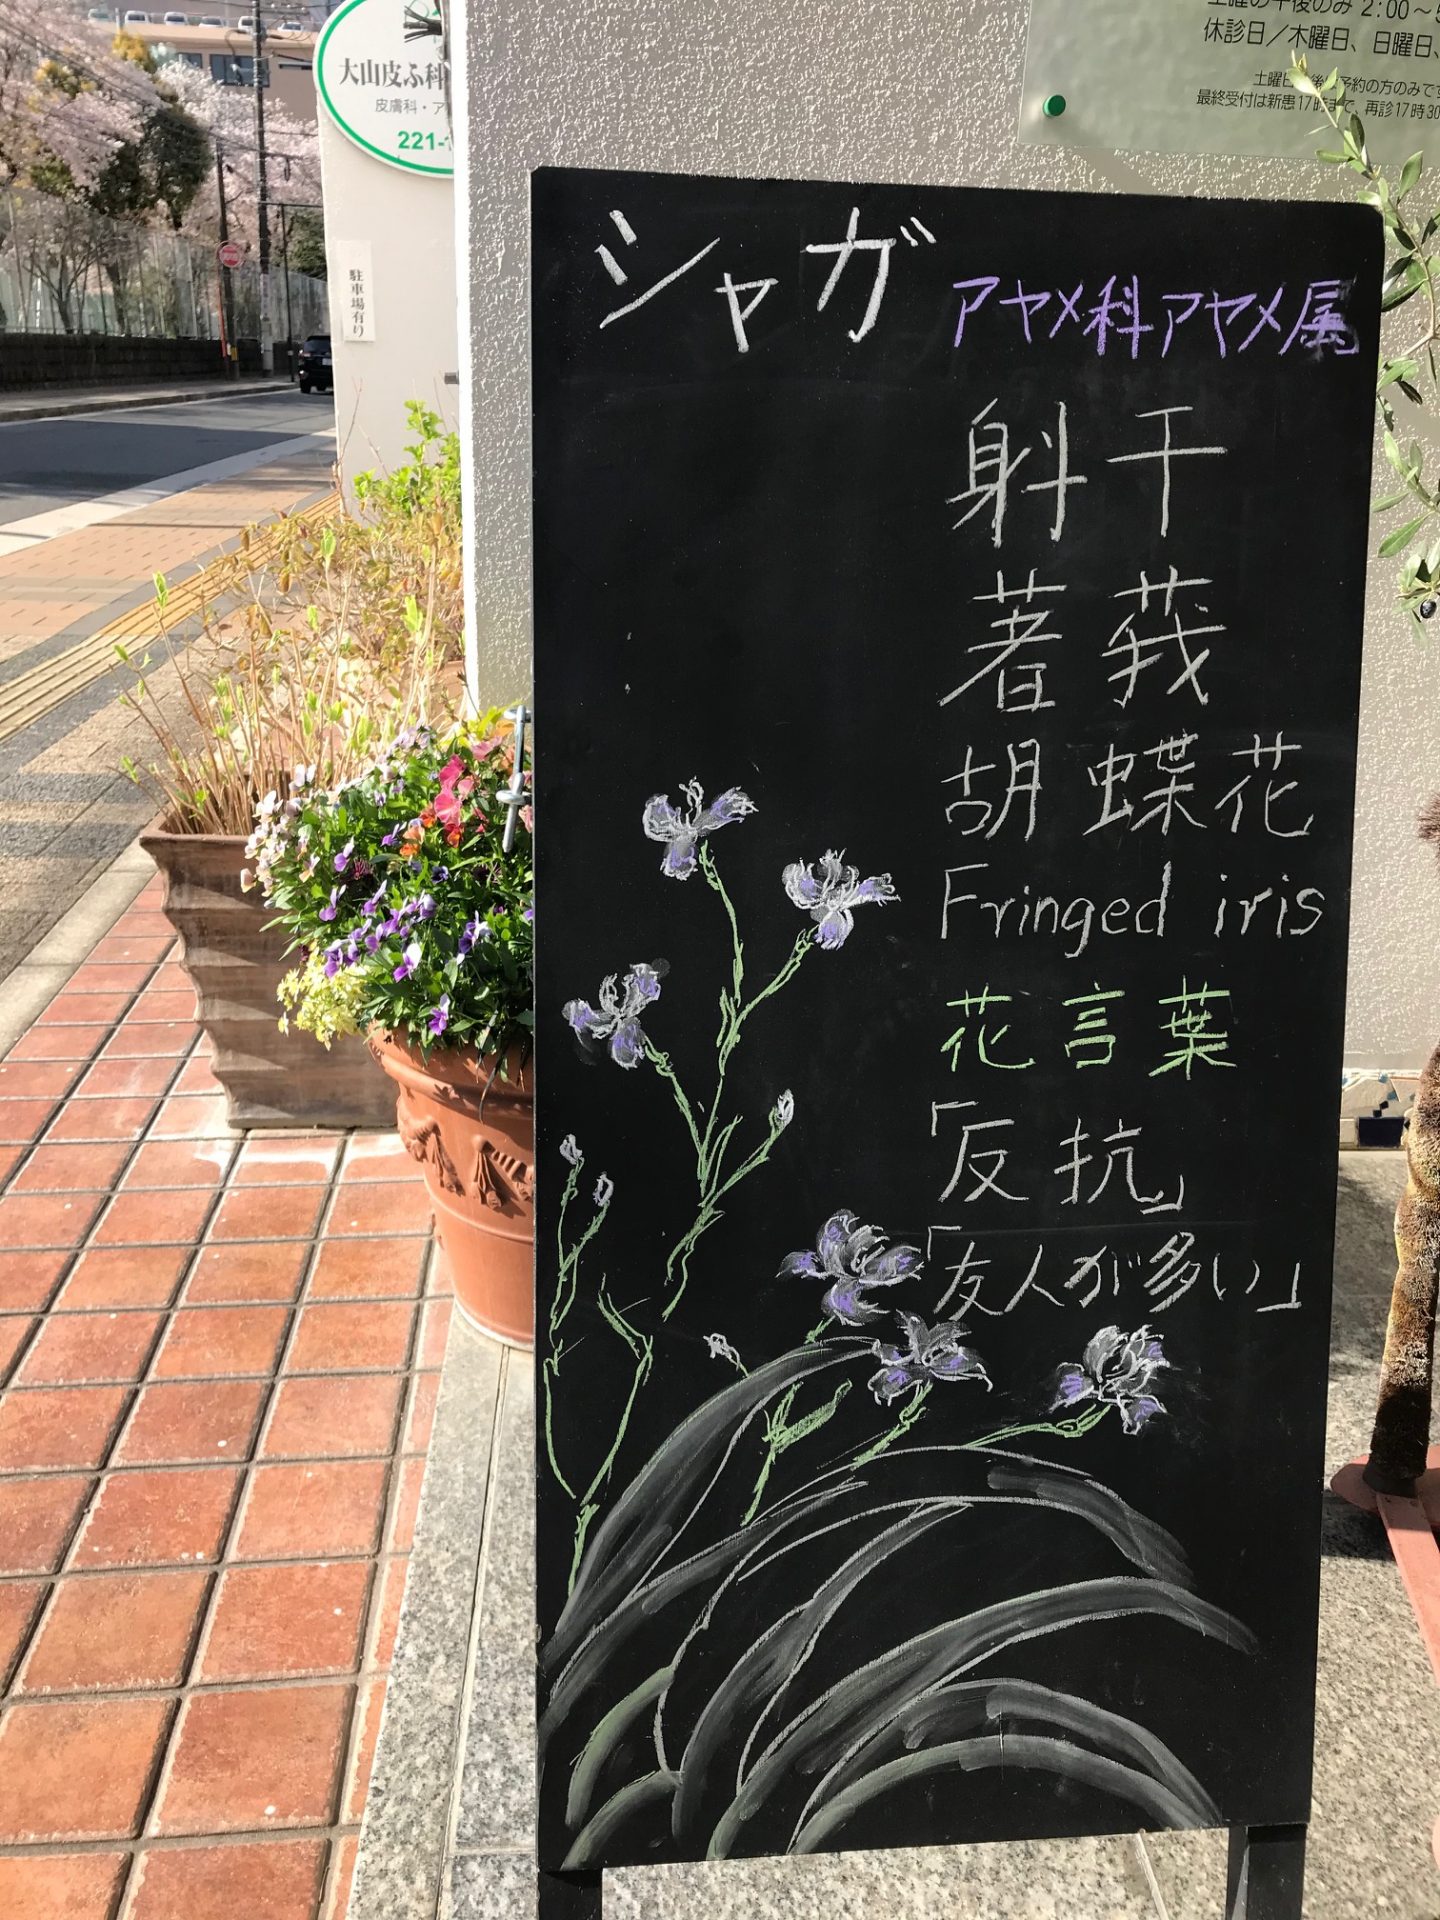 土曜の午後のみ 2:00～5
休診日／木曜日、日曜日、
土曜日
予約の方のみです
最終受付は新患17時まで、再診17時30
大山皮ふ科
皮膚科・ア
221-
駐車場有り
シャガ
アヤメ科アヤメ属
射干
著莪
胡蝶花
Fringed iris
花言葉
「反抗」
「友人が多い」